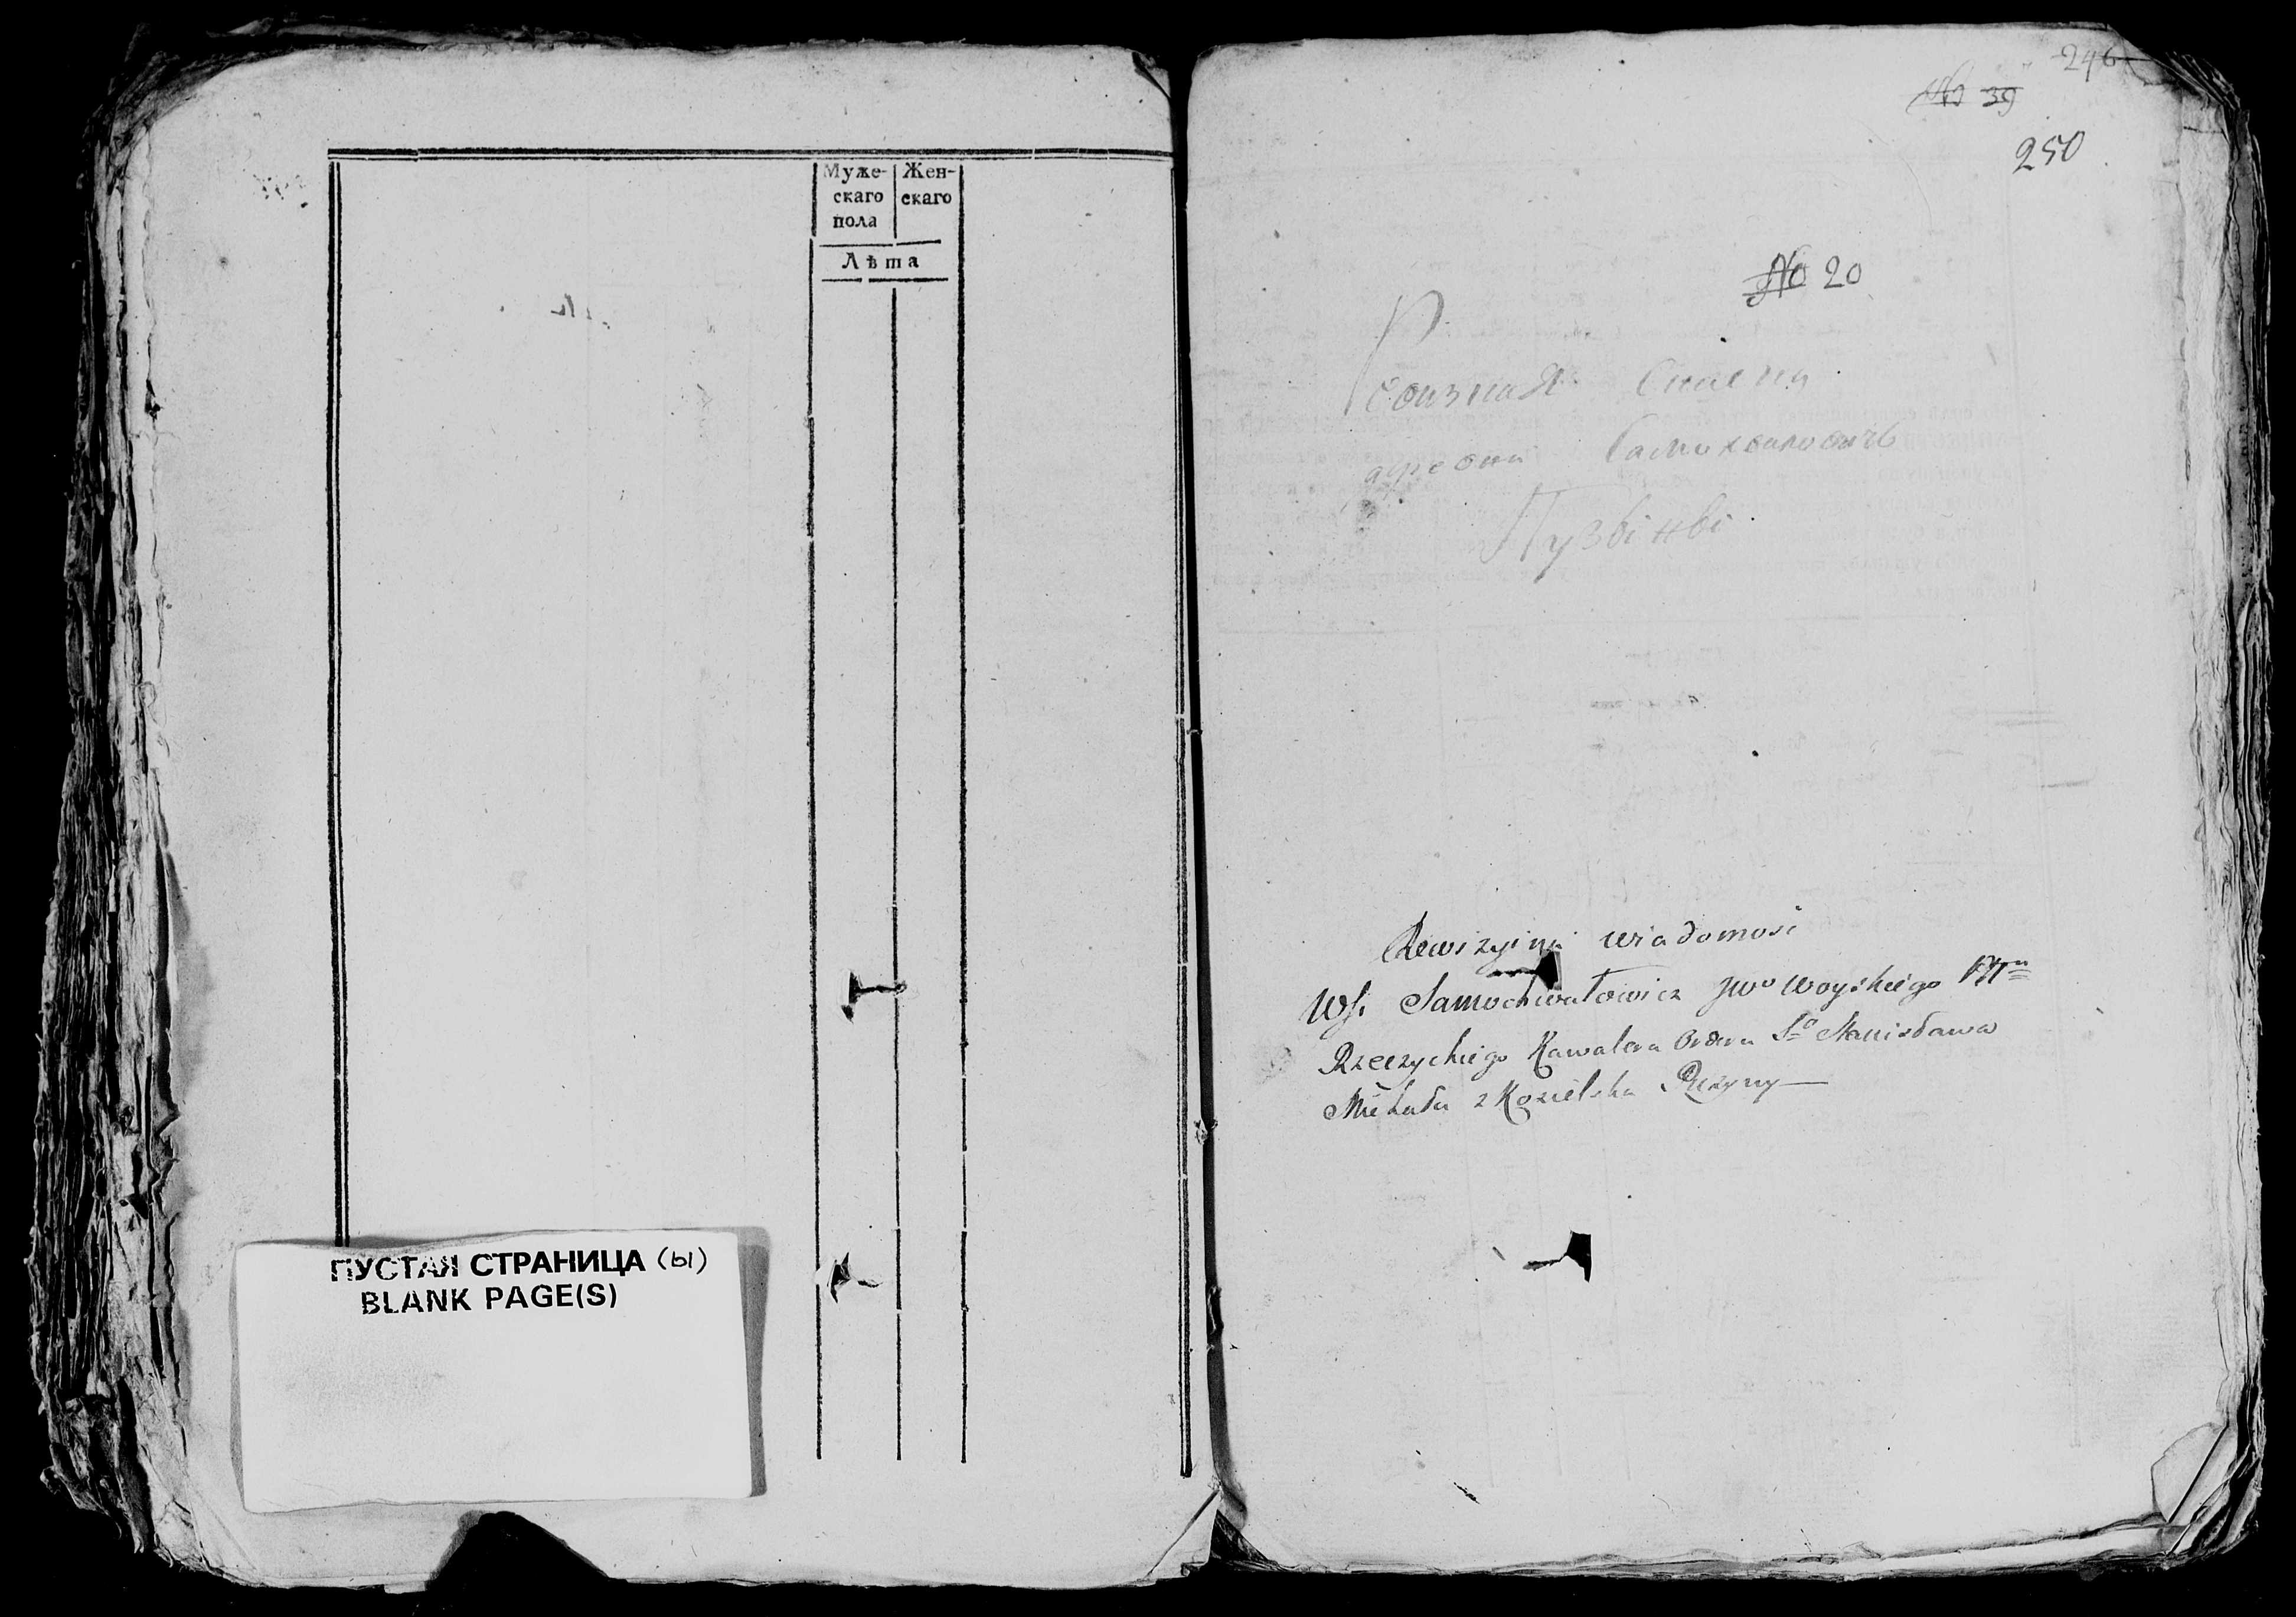 Муже-
скаго
пола
Жен-
скаго
Лѣта
ПУСТАЯ СТРАНИЦА (ы)
BLANK PAGE(S)
246
№ 39
250
№ 20
Самохваловичь
Rewizyina wiadomosć
Wsi Samochwałowicz JWo Woyskiego
Rzeczyckiego Kawalera Orderu So Stanisława
Michała z Kozielska Puzyny